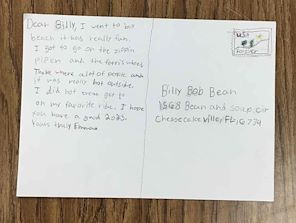 Dear Billy, I went to bay
beach it was really fun.
I got to go on the zippin
pipen and the ferris wheel
There where alot of people and
it was really hot outside.
I did not even get to
on my favorite ride. I hope
you have a good 2023.
Yours truly Emma
USA
Forever
Billy Bob Bean
1568 Bean and soup cir
Cheesecake Ville, FL, 6734